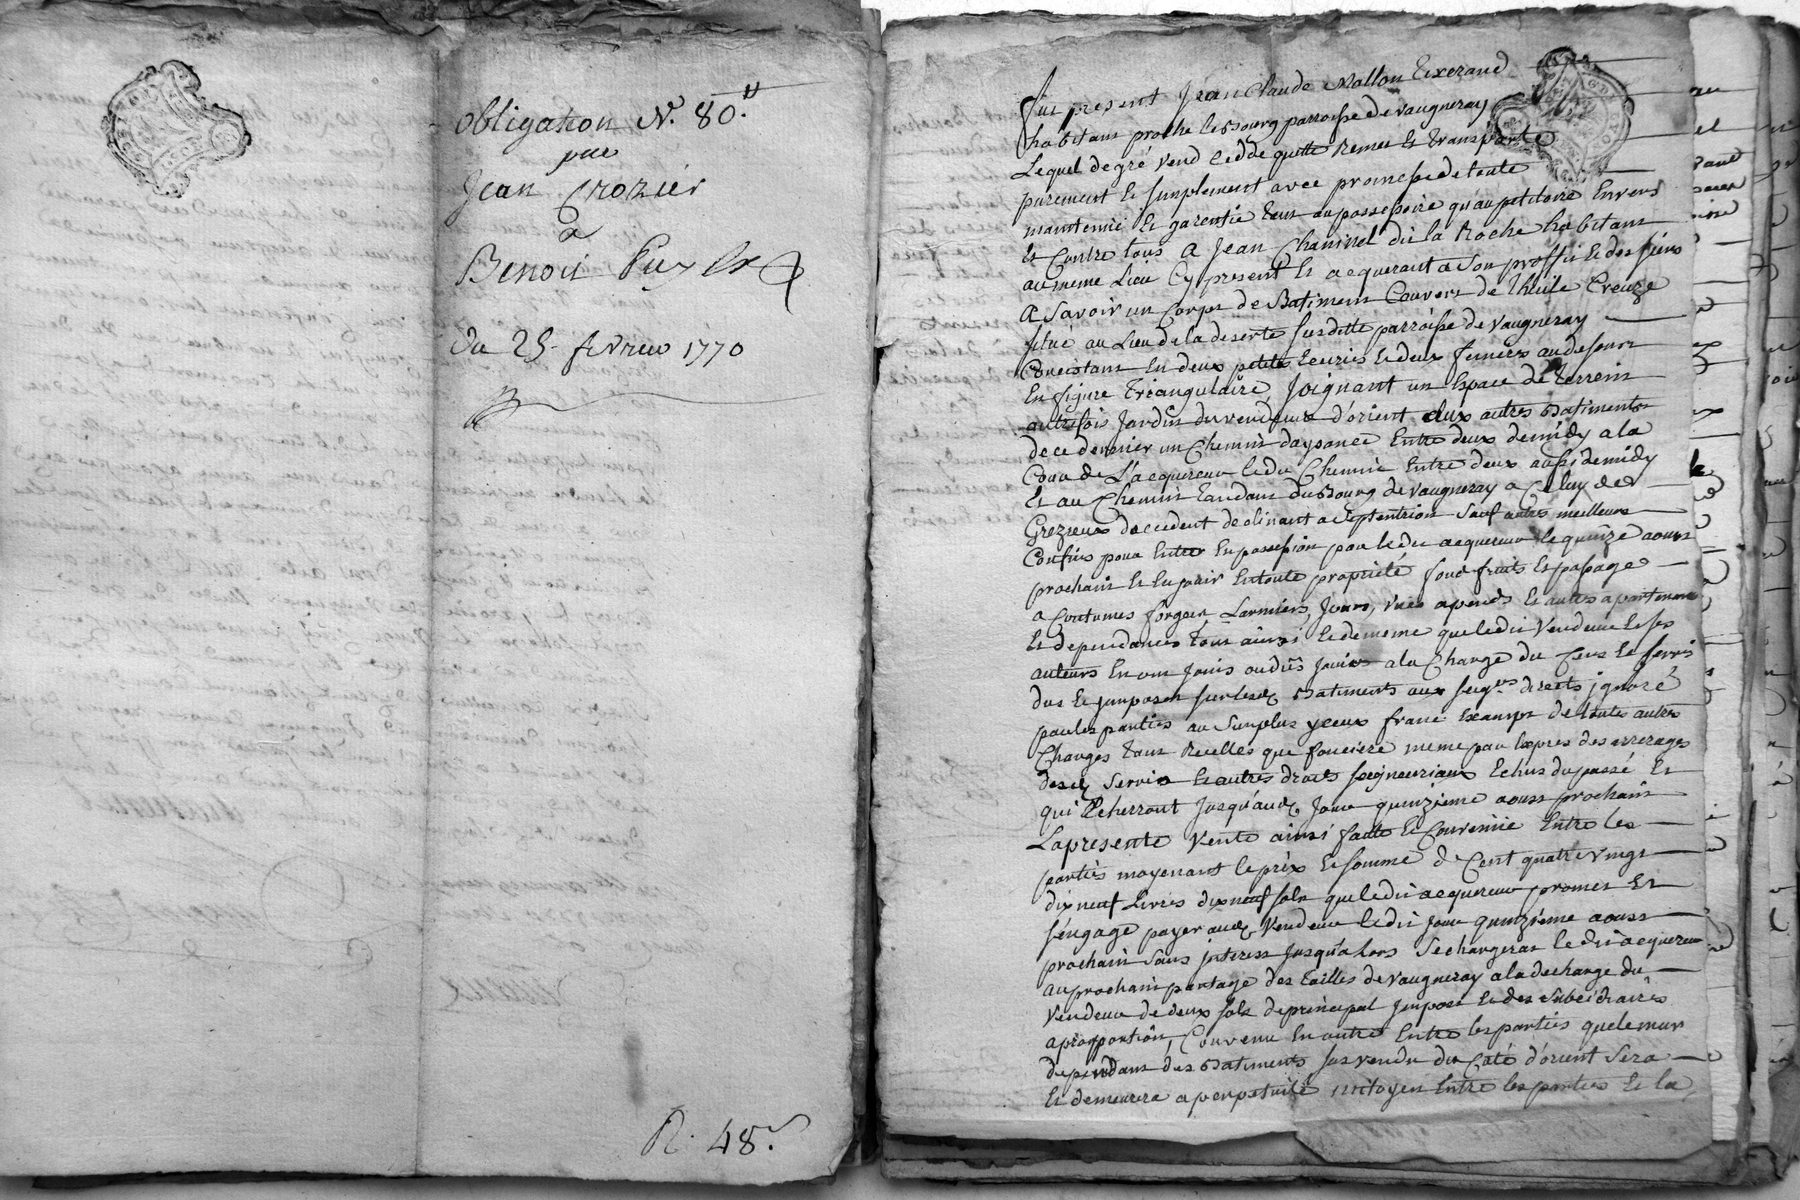 obligation N.° 80.ᵗᵗ
par
Jean Crozier
a
Benoit
du 25. fevrier 1770
R. 48.ˢ
fut present Jean Claude Mallon tixerand
habitant proche le Bourg parroisse de vaugneray
Lequel de gré vend cedde quitte remet et transporte
purement et simplement avec promesse de toute
maintenüe et garentie tant au possessoire qu'au petitoire Envers
et Contre tous a Jean Chaminel dit la Roche habitant
au meme Lieu Cy present et acquerant a son proffit et des siens
a savoir un Corps de Batiment Couvert de thuile Creuze
situé au Lieu de la deserte susditte parroisse de vaugneray
Concistant En deux petite Ecuries et deux feniers au dessous
En figure triangulaire, Joignant un Espace de terrein
autrefois Jardin du vendeur d'orient aux autres Batiments
de ce dernier un Chemin daysance Entre deux de midy a la
Cour de L'acquereur ledit Chemin Entre deux aussi de midy
et au Chemin tendant du Bourg de vaugneray a Celuy de
Grezieux doccident declinant a septentrion sauf autres meilleurs
Confins pour Entrer En possession par ledit acquereur le quinze aoust
prochain et En jouir En toute proprieté fond fruits et passage
a Coutumes forgets Larmiers, Jours, vües apends et autres apartenances
et dependances tout ainsi et de meme que ledit vendeur et ses
auteurs En ont Jouis ou dûs Jouir a la Charge du Cens et servis
dus et Imposés sur lesd. Batiments aux seig.rs directs ignoré
par les parties au surplus yceux franc Exempt de toutes autres
Charges tant reelles que fonciere meme par Expres des arrerages
desd. servis et autres droits seigneuriaux Echus du passé et
qui Echerront Jusqu'aud. Jour quinzieme aoust prochain
La presente vente ainsi faitte et Convenüe Entre les
parties moyenant le prix et somme de Cent quatre vingt
dix neuf Livres dix neuf sols que ledit acquereur promet et
s'engage payer aud. vendeur ledit Jour quinzieme aoust
prochain sans interest Jusqu'alors se chargerat ledit acquereur
au prochain partage des tailles de vaugneray a la decharge du
vendeur de deux sols de principal Impost et des subsidiaires
a proportion, Convenu En outre Entre les parties que le mur
dependant des Batiments sus vendu du Coté d'orient sera
et demeurera a perpetuité mitoyen Entre les parties et la